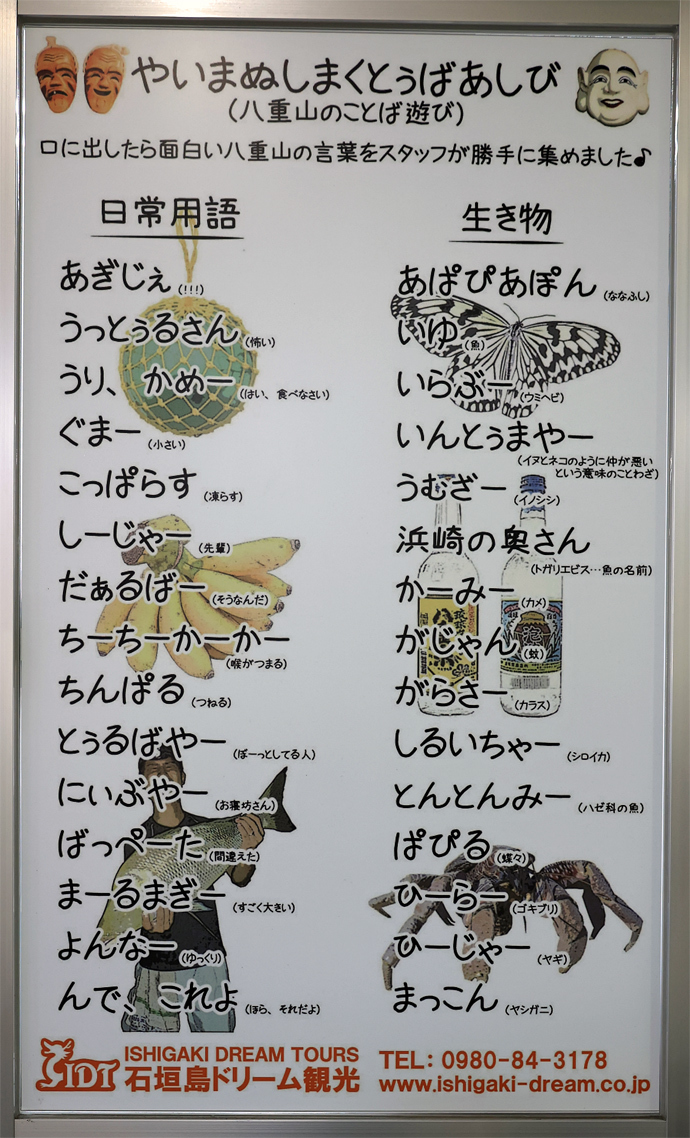 やいまぬしまくとぅばあしび
(八重山のことば遊び)
口に出したら面白い八重山の言葉をスタッフが勝手に集めました♪
日常用語
あぎじぇ(!!!)
うっとぅるさん(怖い)
うり、かめー(はい、食べなさい)
ぐまー(小さい)
こっぱらす(凍らす)
しーじゃー(先輩)
だぁるばー(そうなんだ)
ちーちーかーかー
(喉がつまる)
ちんぱる(つねる)
とぅるばやー(ぼーっとしてる人)
にぃぶやー(お寝坊さん)
ばっぺーた(間違えた)
まーるまぎー(すごく大きい)
よんなー(ゆっくり)
んで、これよ(ほら、それだよ)
生き物
あぱぴあぽん(ななふし)
いゆ(魚)
いらぶー(ウミヘビ)
いんとぅまやー
(イヌとネコのように仲が悪い
という意味のことわざ)
うむざー(イノシシ)
浜崎の奥さん
(トガリエビス…魚の名前)
かーみー(カメ)
がじゃん(蚊)
がらさー(カラス)
しるいちゃー(シロイカ)
とんとんみー(ハゼ科の魚)
ぱぴる(蝶々)
ひーらー(ゴキブリ)
ひーじゃー(ヤギ)
まっこん(ヤシガニ)
IDT
ISHIGAKI DREAM TOURS
石垣島ドリーム観光
TEL: 0980-84-3178
www.ishigaki-dream.co.jp